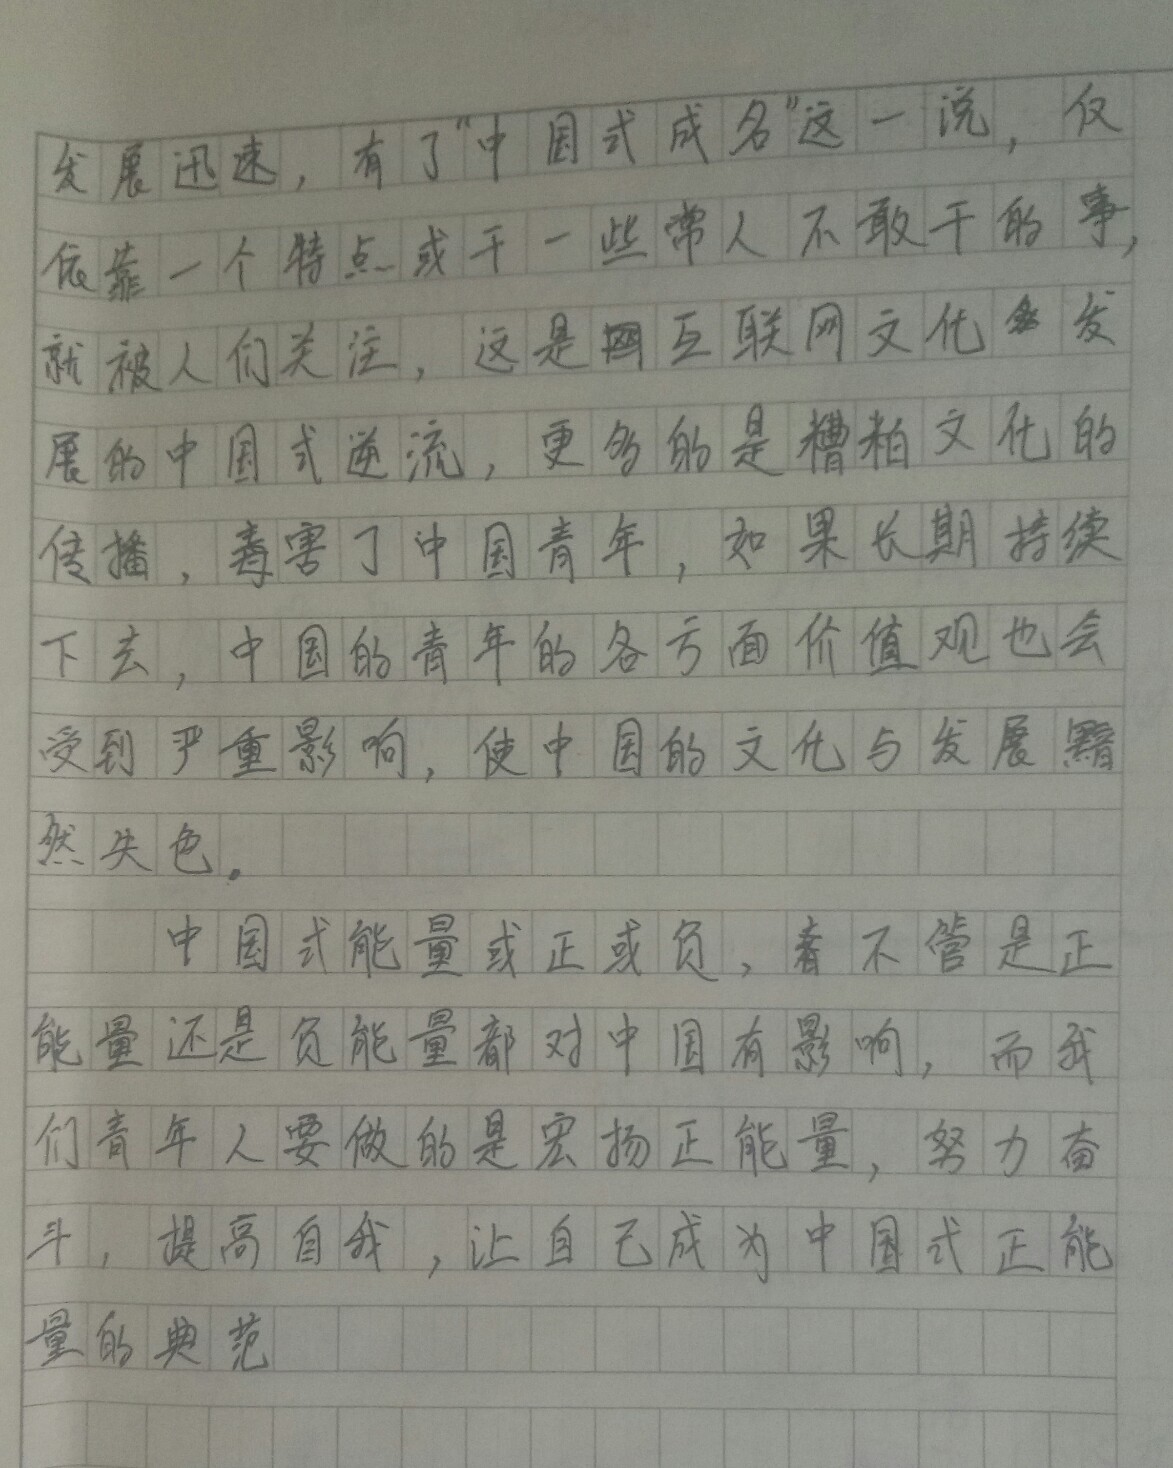 发展迅速，有了“中国式成名”这一说，仅
依靠一个特点或干一些常人不敢干的事，
就被人们关注，这是互联网文化发
展的中国式逆流，更多的是糟粕文化的
传播，毒害了中国青年，如果长期持续
下去，中国的青年的各方面价值观也会
受到严重影响，使中国的文化与发展黯
然失色。
中国式能量或正或负，不管是正
能量还是负能量都对中国有影响，而我
们青年人要做的是宏扬正能量，努力奋
斗，提高自我，让自己成为中国式正能
量的典范